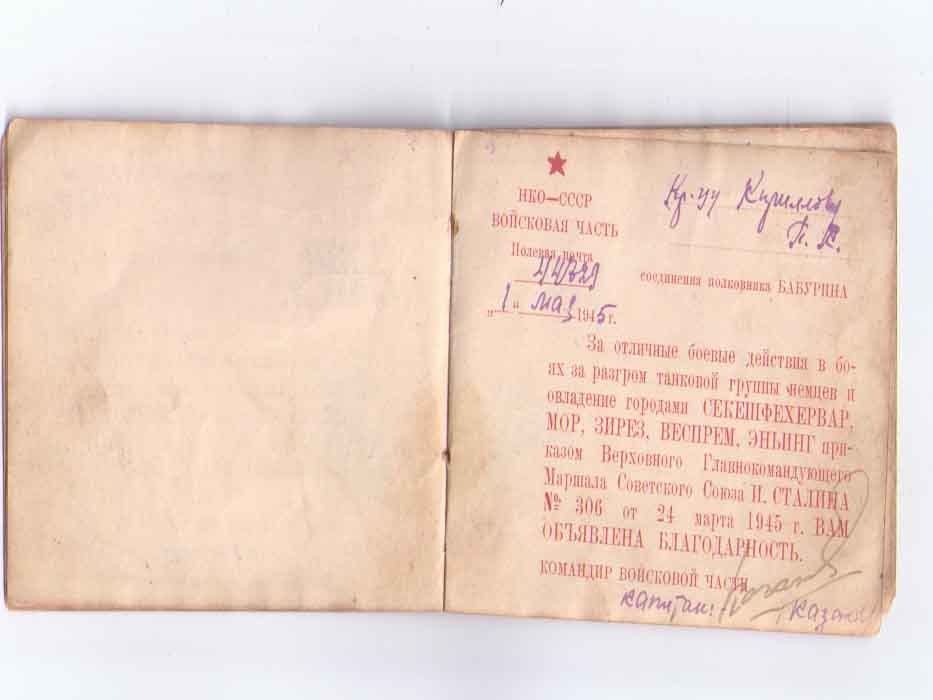 НКО—СССР
ВОЙСКОВАЯ ЧАСТЬ
Полевая почта
„1" мая 1945 г.
Кр-цу Кириллову
П. К.
соединения полковника БАБУРИНА
За отличные боевые действия в бо-
ях за разгром танковой группы немцев и
овладение городами СЕКЕШФЕХЕРВАР,
МОР, ЗИРЕЗ, ВЕСПРЕМ, ЭНЬИНГ при-
казом Верховного Главнокомандующего
Маршала Советского Союза И. СТАЛИНА
№ 306 от 24 марта 1945 г. ВАМ
ОБЪЯВЛЕНА БЛАГОДАРНОСТЬ.
КОМАНДИР ВОЙСКОВОЙ ЧАСТИ
капитан: